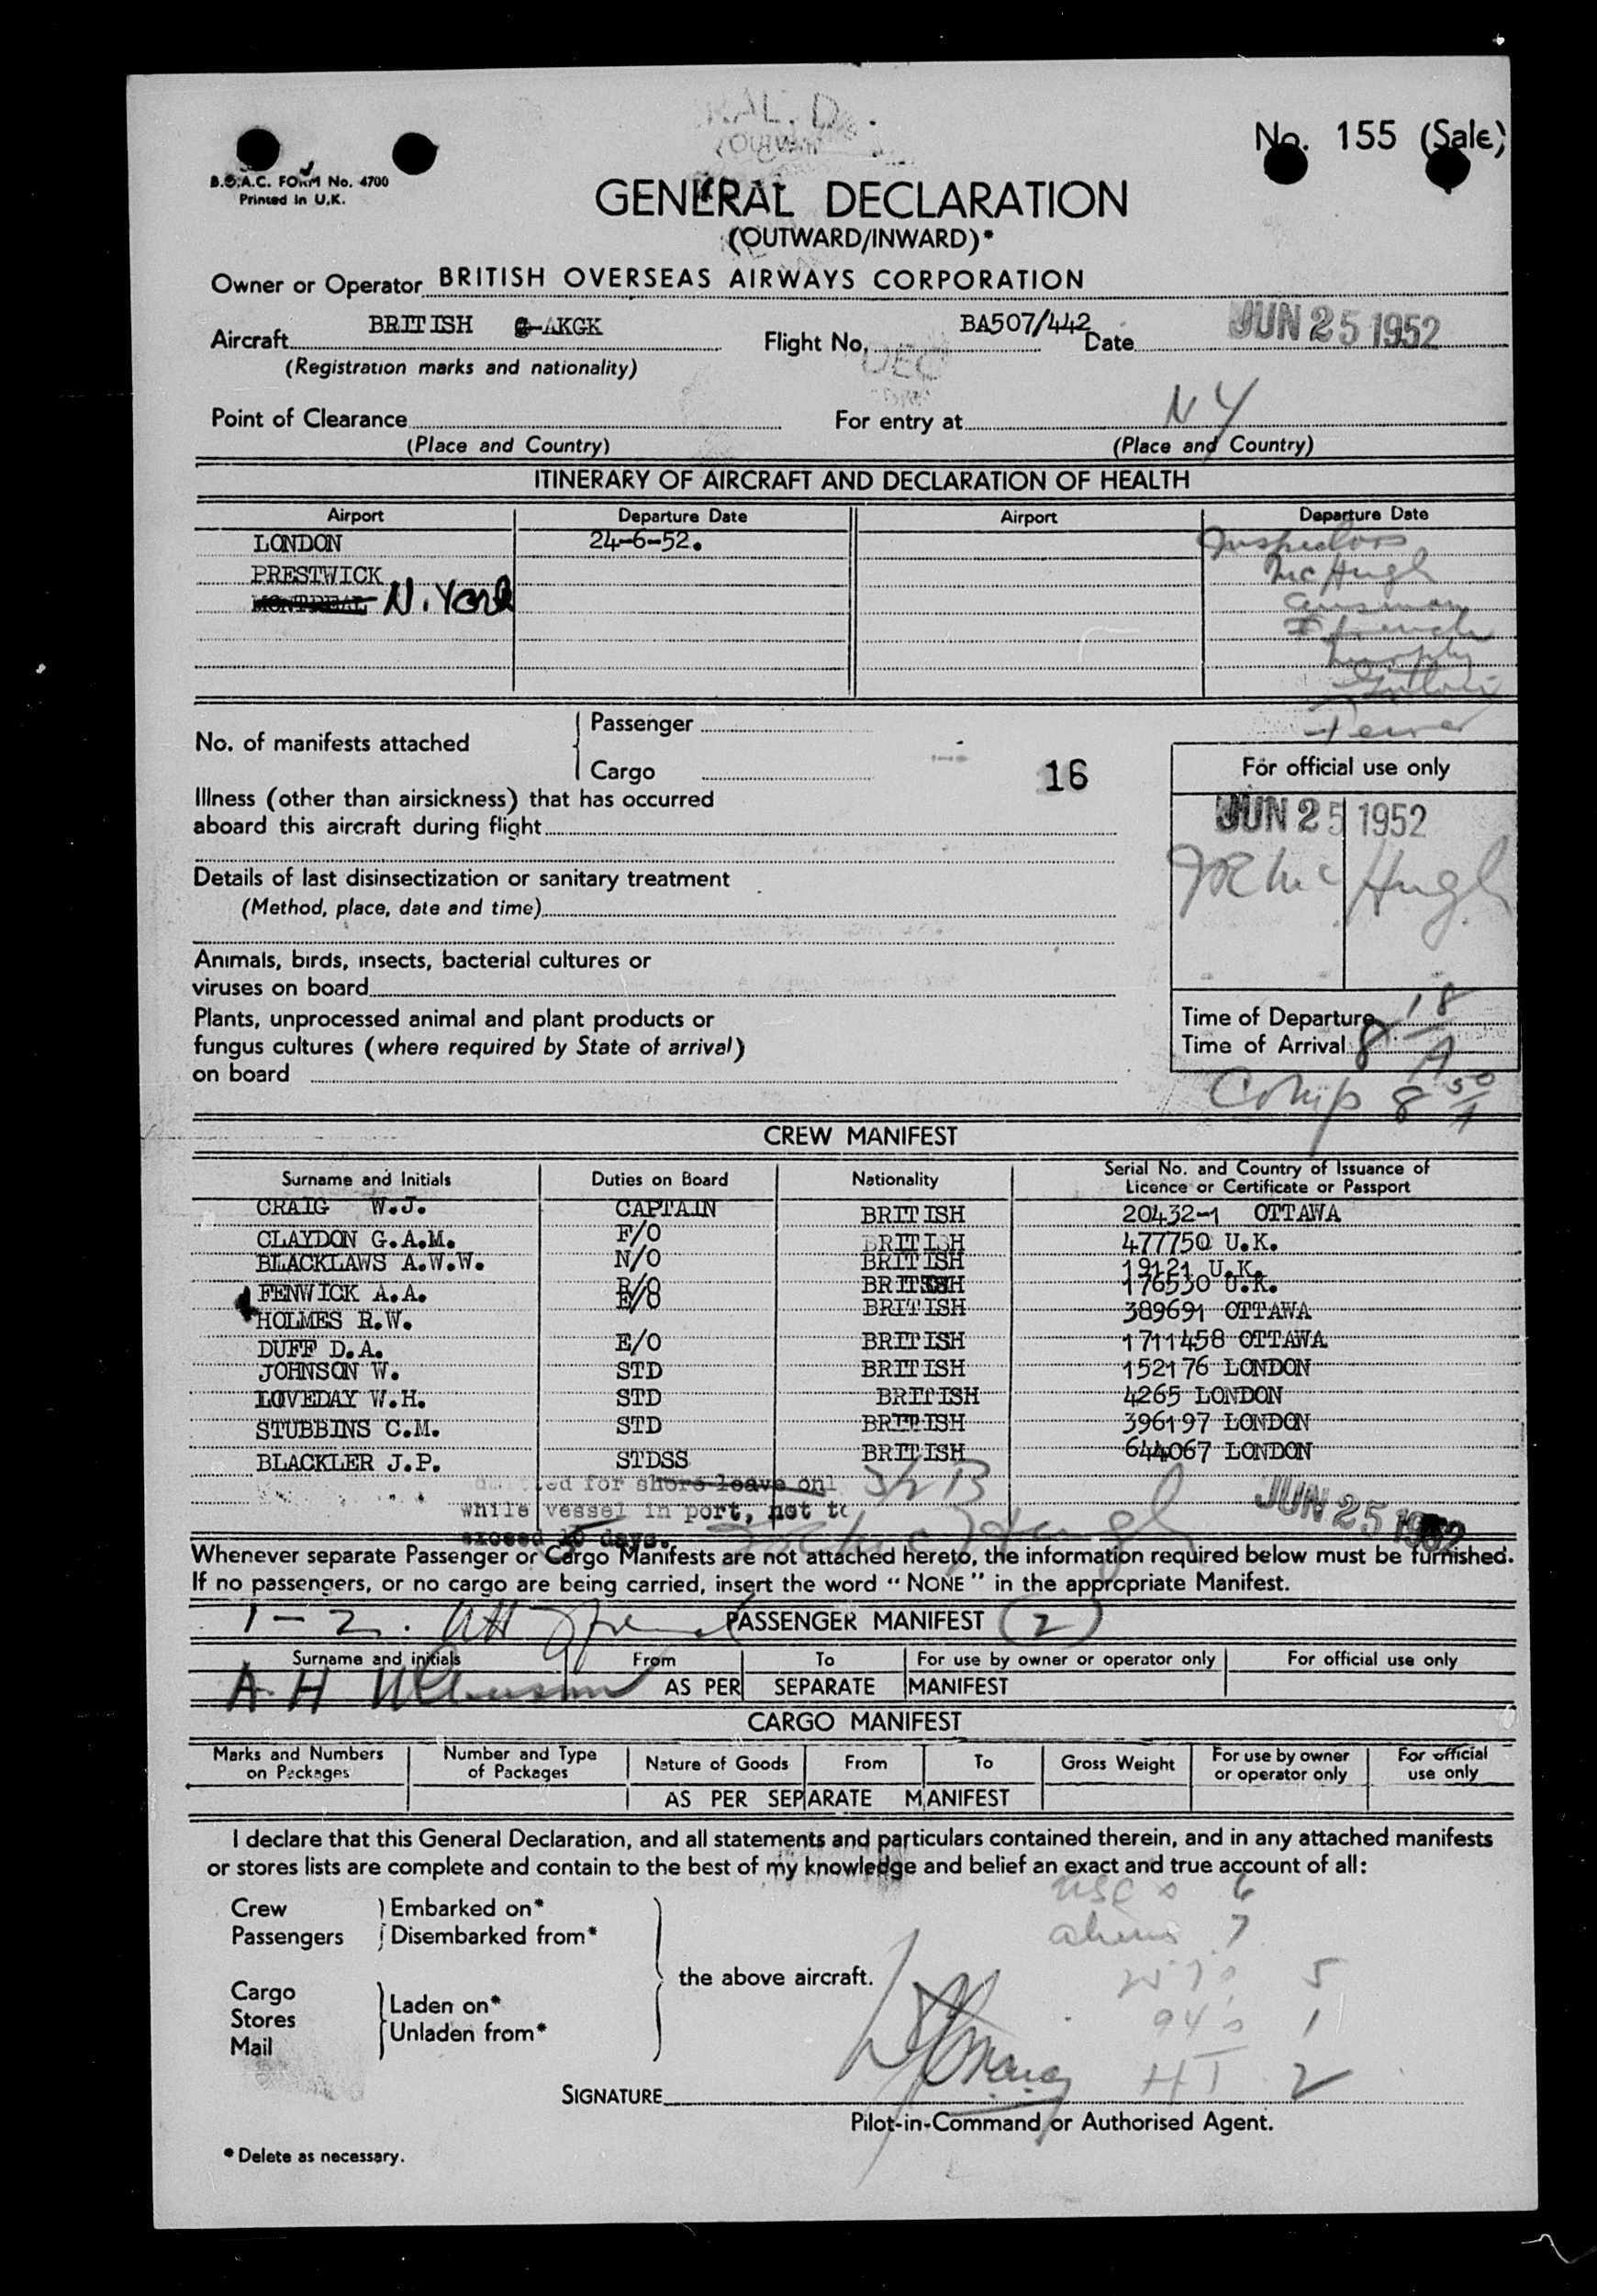 No. 155 (Sale)
B.O.A.C. FORM No. 4700
Printed in U.K.
GENERAL DECLARATION
(OUTWARD/INWARD)*
Owner or Operator BRITISH OVERSEAS AIRWAYS CORPORATION
Aircraft BRITISH G-AKGK Flight No. BA507/442 Date JUN 25 1952
(Registration marks and nationality)
Point of Clearance For entry at NY
(Place and Country) (Place and Country)
ITINERARY OF AIRCRAFT AND DECLARATION OF HEALTH
Airport Departure Date Airport Departure Date
LONDON 24-6-52. Inspectors
PRESTWICK McHugh
MONTREAL N. York
French
Murphy
No. of manifests attached
Passenger
Cargo
16
For official use only
JUN 25 1952
McHugh
Illness (other than airsickness) that has occurred
aboard this aircraft during flight
Details of last disinsectization or sanitary treatment
(Method, place, date and time)
Animals, birds, insects, bacterial cultures or
viruses on board
Plants, unprocessed animal and plant products or
fungus cultures (where required by State of arrival)
on board
Time of Departure
Time of Arrival 8 18 A
Comp 8 50 A
CREW MANIFEST
Surname and Initials Duties on Board Nationality Serial No. and Country of Issuance of
Licence or Certificate or Passport
CRAIG W.J. CAPTAIN BRITISH 20432-1 OTTAWA
CLAYDON G.A.M. F/O BRITISH 477750 U.K.
BLACKLAWS A.W.W. N/O BRITISH 19121 U.K.
FENWICK A.A. R/O BRITISH 176530 U.K.
HOLMES R.W. E/O BRITISH 389691 OTTAWA
DUFF D.A. E/O BRITISH 1711458 OTTAWA
JOHNSON W. STD BRITISH 152176 LONDON
LOVEDAY W.H. STD BRITISH 4265 LONDON
STUBBINS C.M. STD BRITISH 396197 LONDON
BLACKLER J.P. STDSS BRITISH 644067 LONDON
for shore leave onl
while vessel in port, not to
exceed days.
JUN 25 1952
Whenever separate Passenger or Cargo Manifests are not attached hereto, the information required below must be furnished.
If no passengers, or no cargo are being carried, insert the word "NONE" in the appropriate Manifest.
1-2. PASSENGER MANIFEST (2)
Surname and initials From To For use by owner or operator only For official use only
A H AS PER SEPARATE MANIFEST
CARGO MANIFEST
Marks and Numbers on Packages Number and Type of Packages Nature of Goods From To Gross Weight For use by owner or operator only For official use only
AS PER SEPARATE MANIFEST
I declare that this General Declaration, and all statements and particulars contained therein, and in any attached manifests
or stores lists are complete and contain to the best of my knowledge and belief an exact and true account of all:
USC's 6
Crew Embarked on*
Passengers Disembarked from*
aliens 7
the above aircraft.
5
Cargo
Stores
Mail
Laden on*
Unladen from*
94's 1
HT 2
SIGNATURE
Pilot-in-Command or Authorised Agent.
* Delete as necessary.